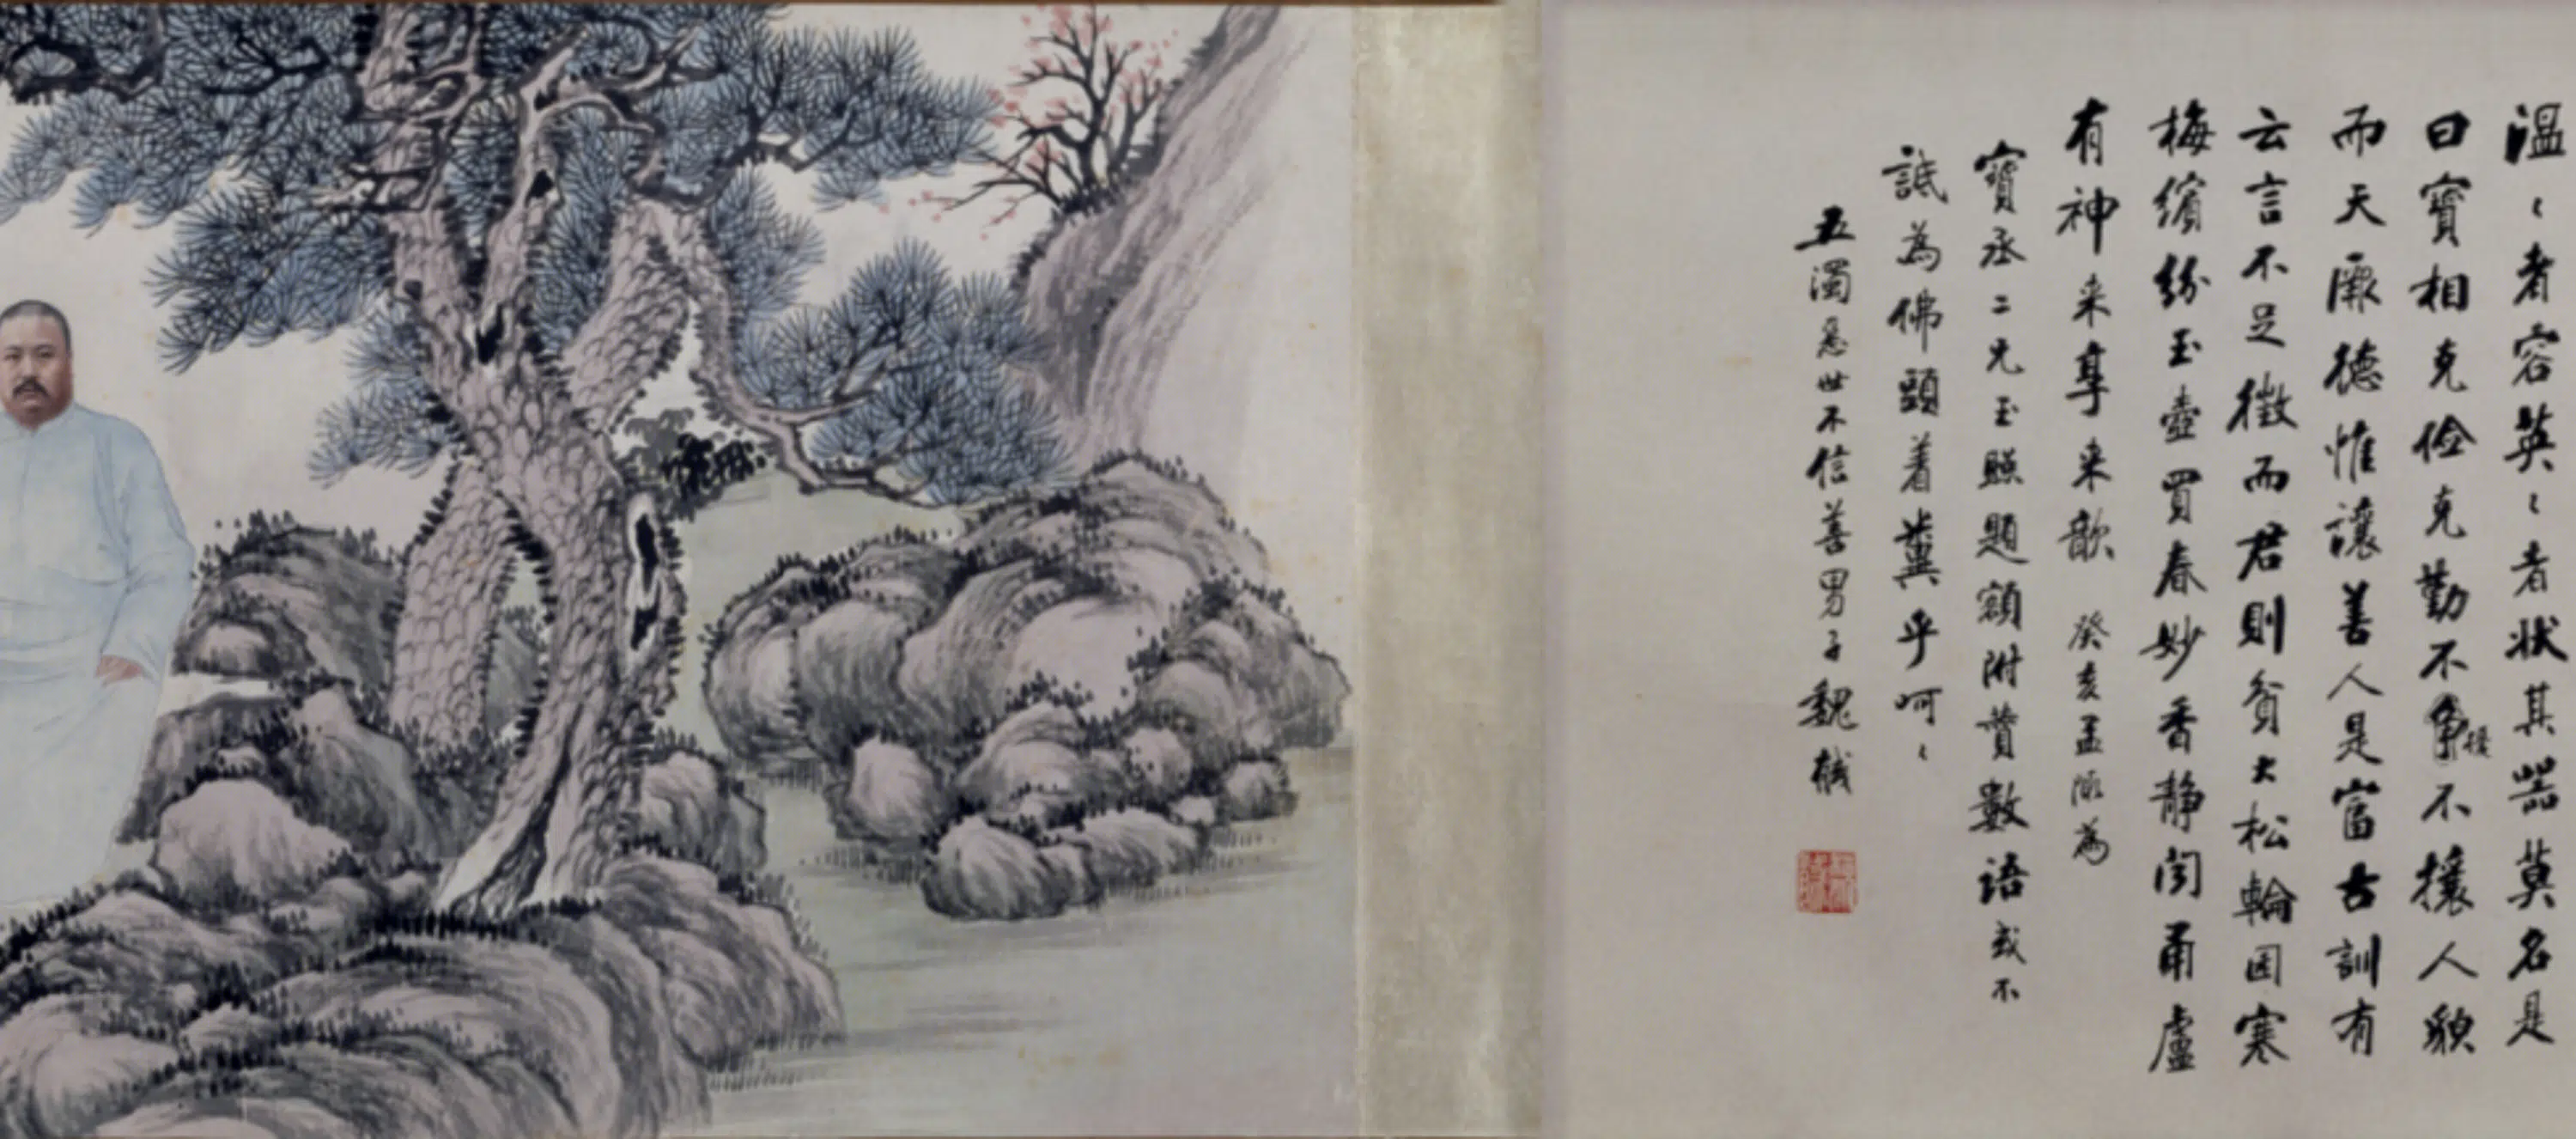 温〻者容英〻者状其器莫名是
曰寳相克俭克勤不争擾不攘人貌
而天厥德惟讓善人是富古訓有
云言不足徵而君則貧大松輪囷寒
梅繽紛玉壺買春妙香静闻甬盧
有神来享来歆 癸亥孟陬為
寳丞二兄玉照題額附贊數語或不
詆為佛頭着糞乎呵〻
五濁惡世不信善男子魏戫